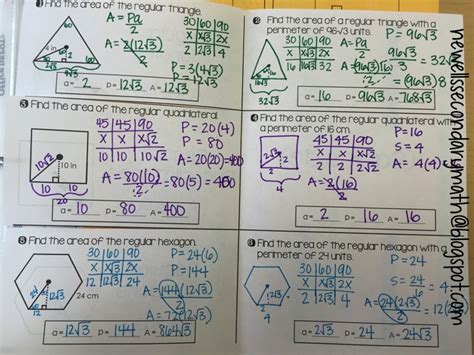 ① Find the area of the regular triangle.
60
4 in
2
2√3
A = Pa
2
30 | 60 | 90
x | x√3 | 2x
2 | 2√3 | 4
A = 2(12√3)
2
P = 3(4√3)
P = 12√3
a = 2 P = 12√3 A = 12√3
② Find the area of a regular triangle with a
perimeter of 96√3 units.
P = 96√3
30 | 60 | 90
x | x√3 | 2x
16 | 16√3 | 32
32√3
A = 16(96√3)
2
a = 16 P = 96√3 A = 768√3
③ Find the area of the regular quadrilateral.
45 | 45 | 90
x | x | x√2
10 | 10 | 10√2
10√2
10 in
10 10
20
P = 20(4)
P = 80
A = 20(20) = 400
A = 80(10) = 80(5) = 400
2
a = 10 P = 80 A = 400
④ Find the area of the regular quadrilateral with
a perimeter of 16 cm.
45 | 45 | 90
x | x | x√2
2 | 2 | 2√2
2√2
2
4
P = 16
S = 4
A = 4(4)
A = 2(16)
2
a = 2 P = 16 A = 16
⑤ Find the area of the regular hexagon.
30 | 60 | 90
x | x√3 | 2x
12 | 12√3 | 24
24
12√3
12
24 cm
P = 24(6)
P = 144
A = 144(12√3)
2
a = 12√3 P = 144 A = 864√3
⑥ Find the area of the regular hexagon with a
perimeter of 24 units.
30 | 60 | 90
x | x√3 | 2x
2 | 2√3 | 4
2
4
P = 24
S = 4
A = 24(2√3)
2
a = 2√3 P = 24 A = 24√3
newellssecondarymath@blogspot.com